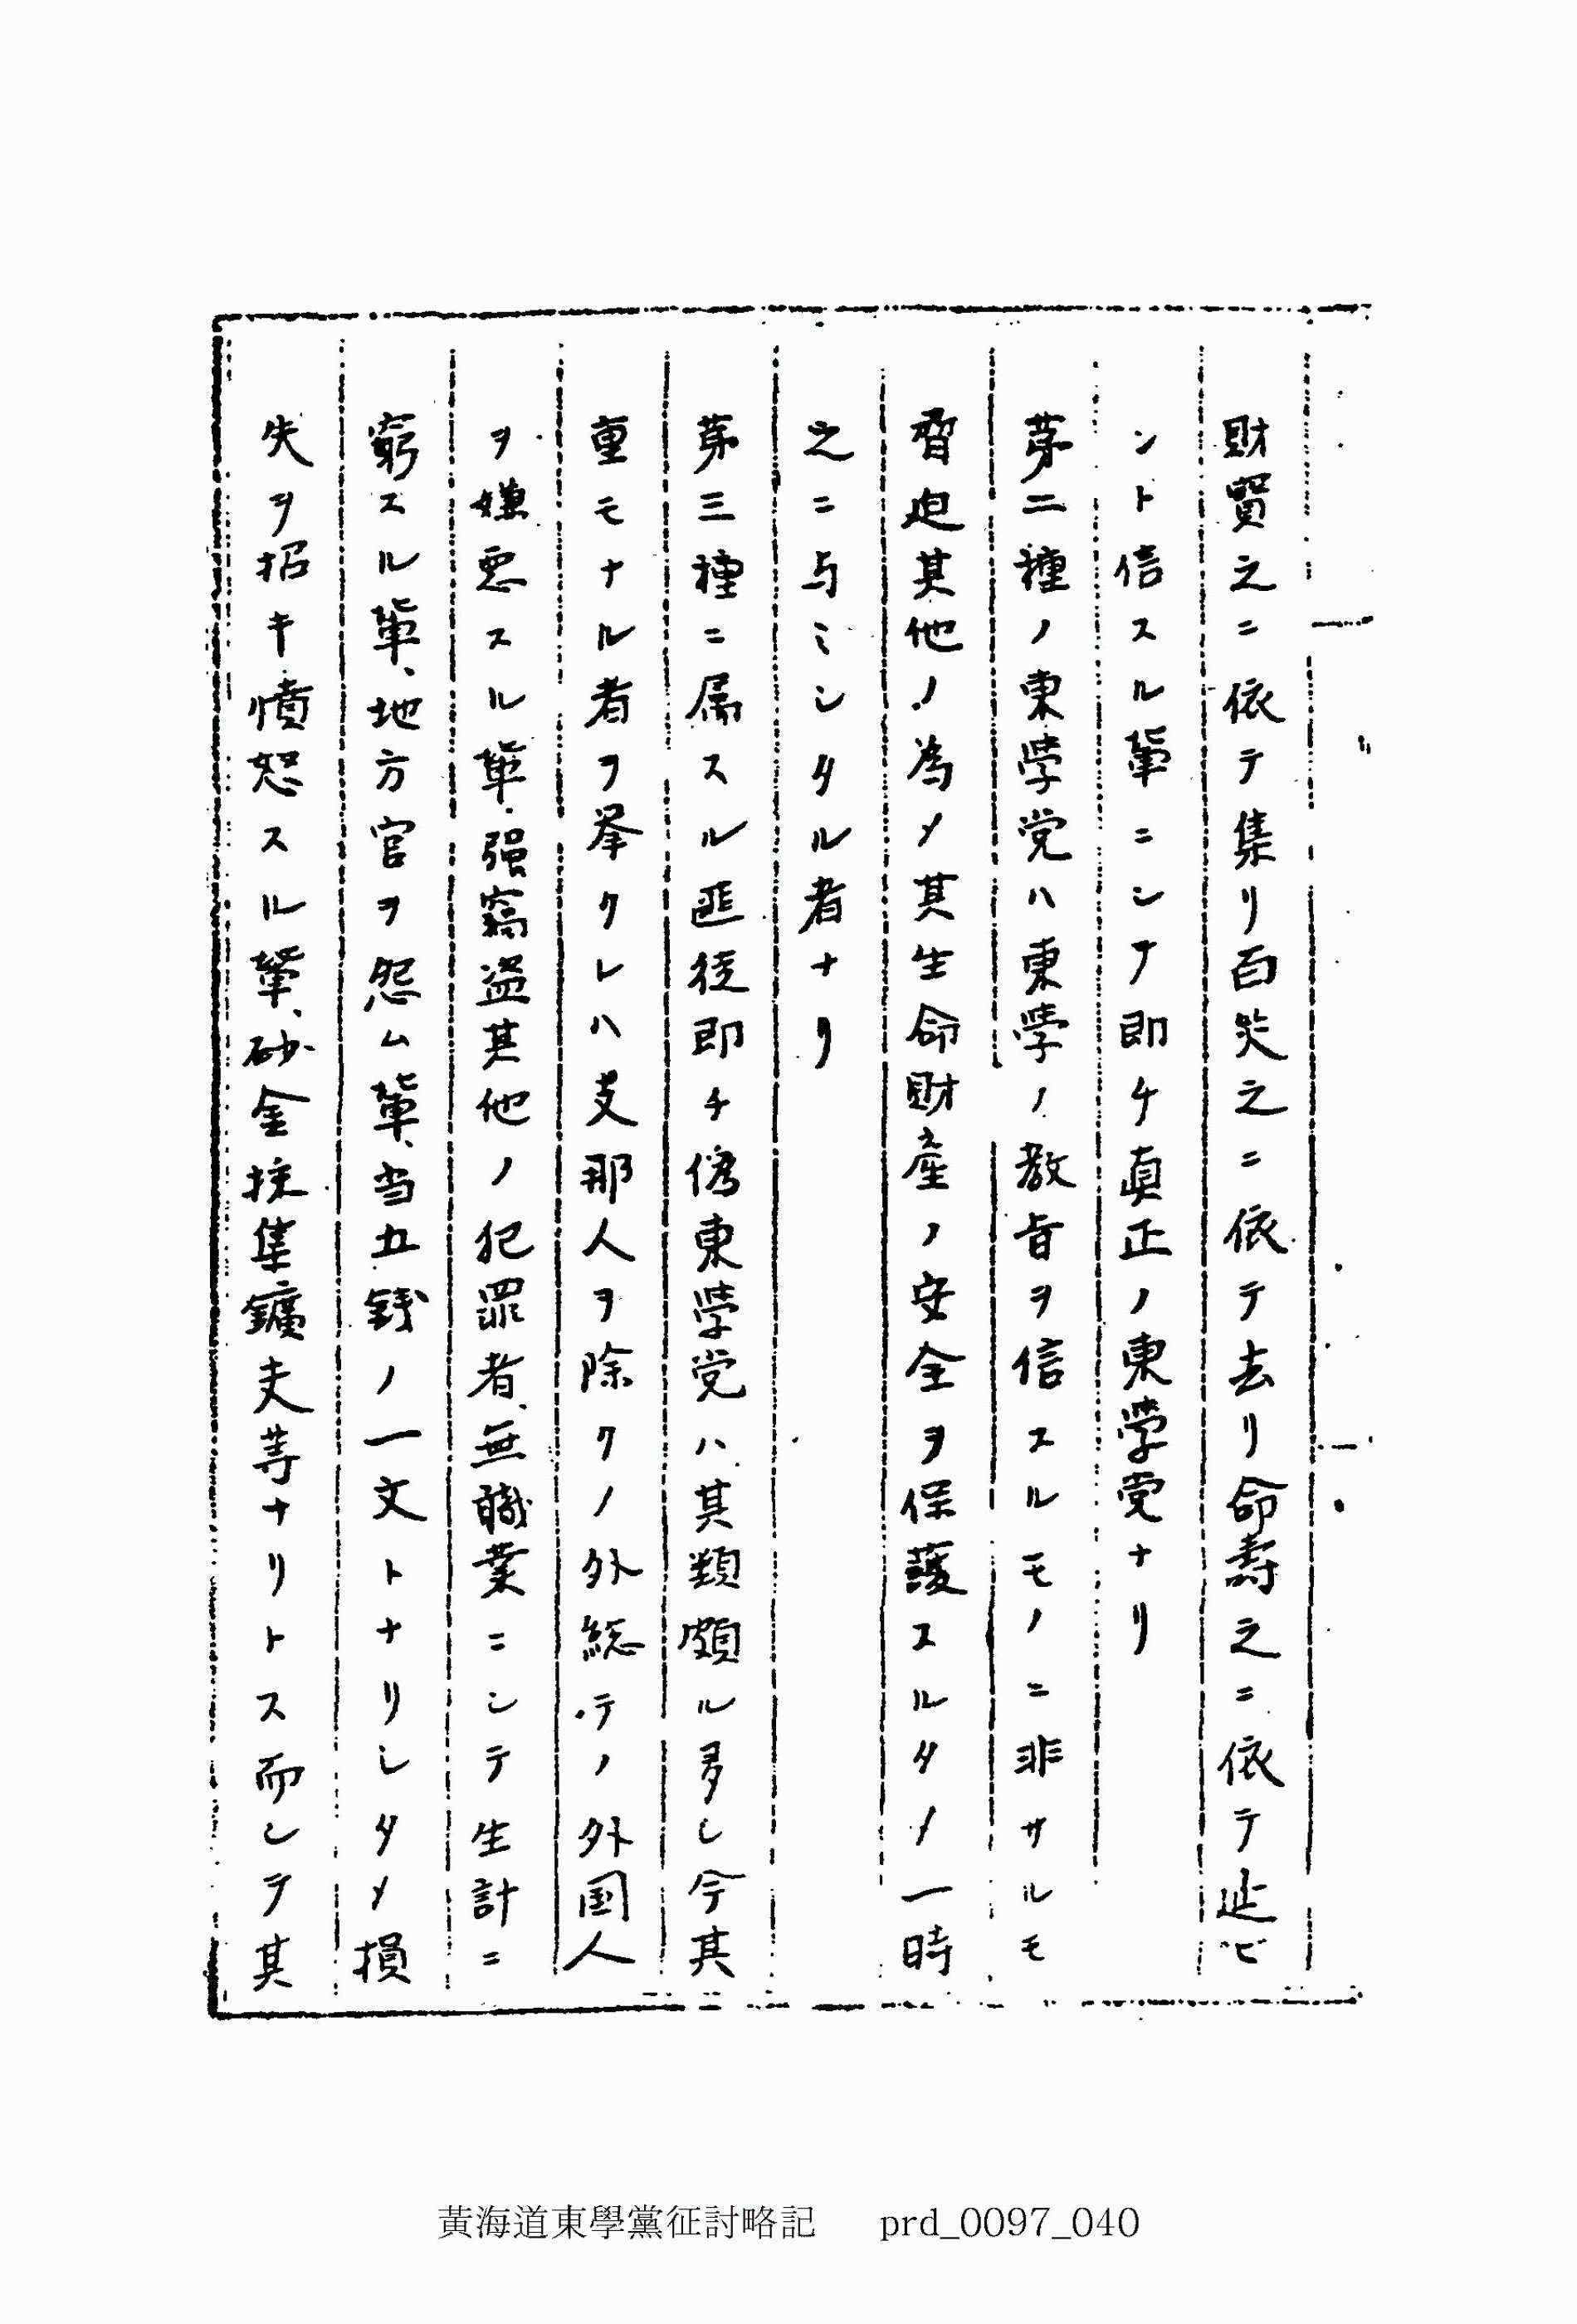 財寳之ニ依テ集リ百災之ニ依テ去リ命壽之ニ依テ延ビ
ント信スル輩ニシテ即チ眞正ノ東学党ナリ
第二種ノ東学党ハ東学ノ教旨ヲ信スルモノニ非サルモ
脅迫其他ノ為メ其生命財産ノ安全ヲ保護スルタメ一時
之ニ与ミシタル者ナリ
第三種ニ属スル匪徒即チ偽東学党ハ其類頗ル多し今其
重モナル者ヲ挙クレハ支那人ヲ除クノ外総テノ外国人
ヲ嫌悪スル輩、强窃盗其他ノ犯罪者、無職業ニシテ生計ニ
窮スル輩、地方官ヲ怨ム輩、当五銭ノ一文トナリシタメ損
失ヲ招キ憤怒スル輩、砂金採集鑛夫等ナリトス而シテ其
黃海道東學黨征討略記 prd_0097_040